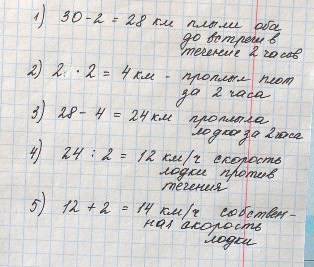 1) 30-2 = 28 км плыли оба
до встречи в
течение 2 часов
2) 2 · 2 = 4 км - проплыл плот
за 2 часа
3) 28 - 4 = 24 км проплыла
лодка за 2 часа
4) 24 : 2 = 12 км/ч скорость
лодки против
течения
5) 12 + 2 = 14 км/ч собствен-
ная скорость
лодки